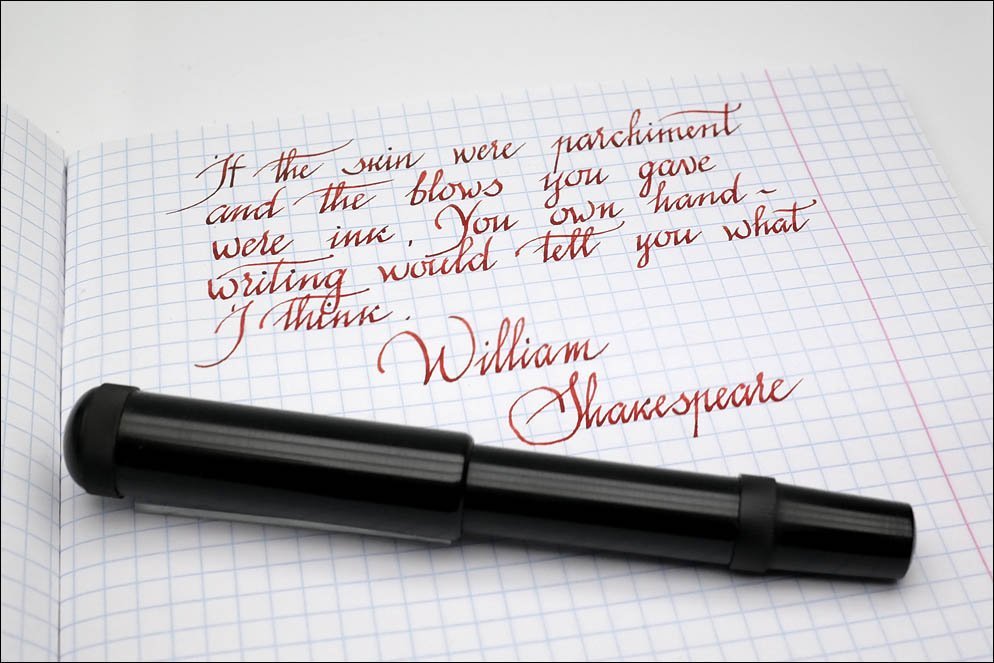 If the skin were parchiment
and the blows you gave
were ink. You own hand-
writing would tell you what
I think.
William
Shakespeare